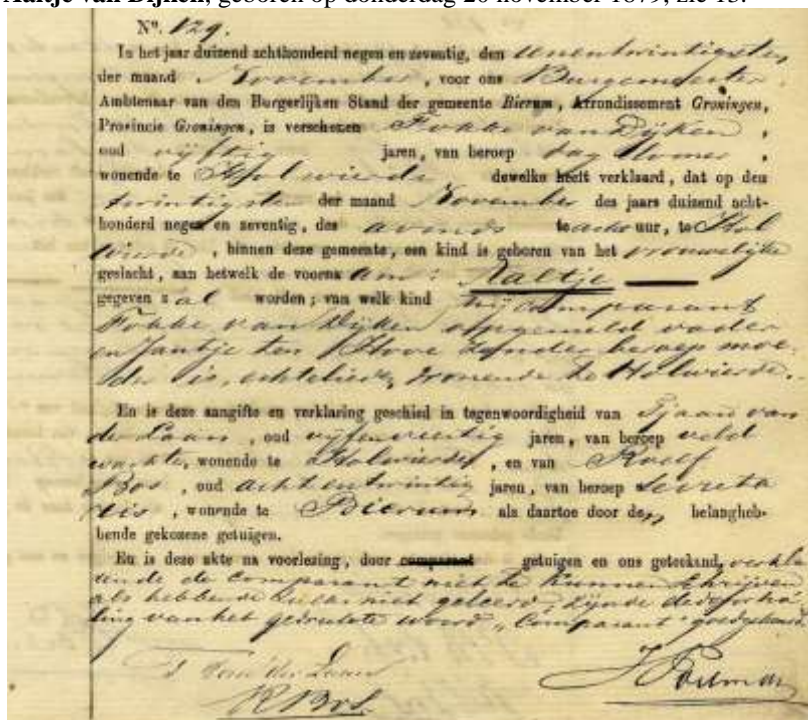 Aaltje van Dijken, geboren op donderdag 20 november 1879, zie 15.
No. 129.
In het jaar duizend achthonderd negen en zeventig, den eenentwintigsten
der maand November, voor ons Burgemeester
Ambtenaar van den Burgerlijken Stand der gemeente Bierum, Arrondissement Groningen,
Provincie Groningen, is verschenen Fokke van Dijken,
oud vijftig jaren, van beroep dagloner,
wonende te Holwierde, dewelke heeft verklaard, dat op den
twintigsten der maand November des jaars duizend acht-
honderd negen en zeventig, des avonds te acht uur, te Hol
wierde, binnen deze gemeente, een kind is geboren van het vrouwelijke
geslacht, aan hetwelk de voornaam: Aaltje
gegeven zal worden; van welk kind hij comparant
Fokke van Dijken opgemeld vader
en Jantje ten Hove zonder beroep moe-
der is, echtelieden, wonende te Holwierde.
En is deze aangifte en verklaring geschied in tegenwoordigheid van Tjaan van
der Laan, oud vijfenveertig jaren, van beroep veld
wachter, wonende te Holwierde, en van Roelf
Bos, oud achtentwintig jaren, van beroep secreta
ris, wonende te Bierum als daartoe door de belangheb-
bende gekozene getuigen.
En is deze akte na voorlezing, door comparant getuigen en ons geteekend, verkla
rende de comparant niet te kunnen schrijven
als hebbende zulks niet geleerd; zijnde de doorha-
ling van het gedrukte woord "Comparant" goedgekeurd.
van der Laan
R Bos.